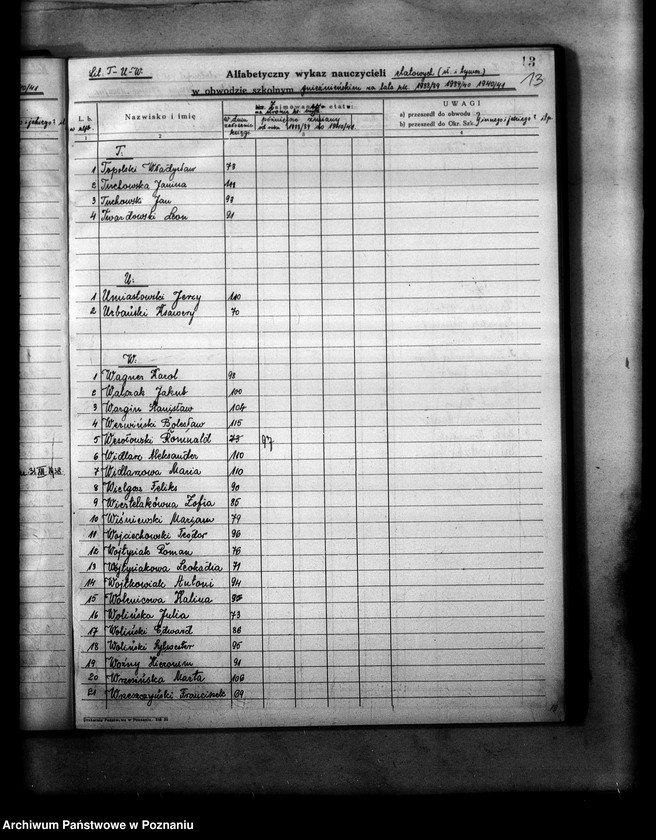 Lit. T-U-W.
13
Alfabetyczny wykaz nauczycieli etatowych
13
w obwodzie szkolnym gnieźnieńskim na lata 1938/39 1939/40 1940/41
L. b.
Nazwisko i imię
w dniu założenia księgi
UWAGI
a) przeszedł do obwodu
b) przeszedł do Okr. Szk.
1
2
3
4
T.
1 Topolski Władysław 78
2 Tuchowska Janina
3 Tuchowski Jan 98
4 Twardowski Leon 91
U.
1 Umiastowski Jerzy 110
2 Urbański Ksawery 70
W.
1 Wagner Karol 98
2 Walczak Jakub 100
3 Wargin Stanisław 104
4 Werwiński Bolesław 115
5 Wesołowski Romuald 73 97
6 Widlarz Aleksander 110
7 Widlarzowa Maria 110
8 Wielgosz Feliks 90
9 Wiertelakówna Zofia 85
10 Wiśniewski Marjan 79
11 Wojciechowski Teodor 96
12 Wojtysiak Roman 76
13 Wojtysiakowa Leokadia 71
14 Wojtkowiak Antoni 94
15 Halina 95
16 Wolińska Julia 73
17 Woliński Edward 88
18 Woliński Sylwester 95
19 Woźny Hieronim 91
20 Wrzesińska Marta 106
21 Wrzeszczyński Franciszek 69
Archiwum Państwowe w Poznaniu